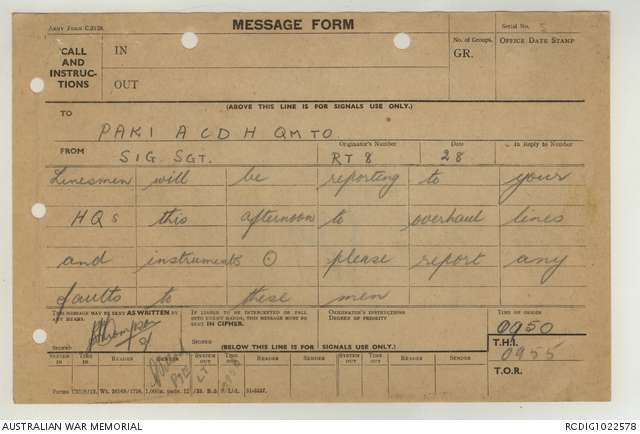 ARMY FORM C.2128.
MESSAGE FORM
Serial No. 5
CALL AND INSTRUCTIONS
IN
OUT
No. of Groups.
GR.
OFFICE DATE STAMP
(ABOVE THIS LINE IS FOR SIGNALS USE ONLY.)
TO
PAKI A C D H QM TO
FROM
SIG SGT.
Originator's Number
RT 8
Date
28
In Reply to Number
Linesmen will be reporting to your
HQs this afternoon to overhaul lines
and instruments ⊙ please report any
faults to these men
THIS MESSAGE MAY BE SENT AS WRITTEN BY ANY MEANS.
IF LIABLE TO BE INTERCEPTED OR FALL INTO ENEMY HANDS, THIS MESSAGE MUST BE SENT IN CIPHER.
ORIGINATOR'S INSTRUCTIONS
DEGREE OF PRIORITY
TIME OF ORIGIN
0950
SIGNED
SIGNED
(BELOW THIS LINE IS FOR SIGNALS USE ONLY.)
T.H.I.
0955
T.O.R.
SYSTEM IN
TIME IN
READER
SENDER
SYSTEM OUT
TIME OUT
READER
SENDER
SYSTEM OUT
TIME OUT
READER
SENDER
AUSTRALIAN WAR MEMORIAL
RCDIG1022578